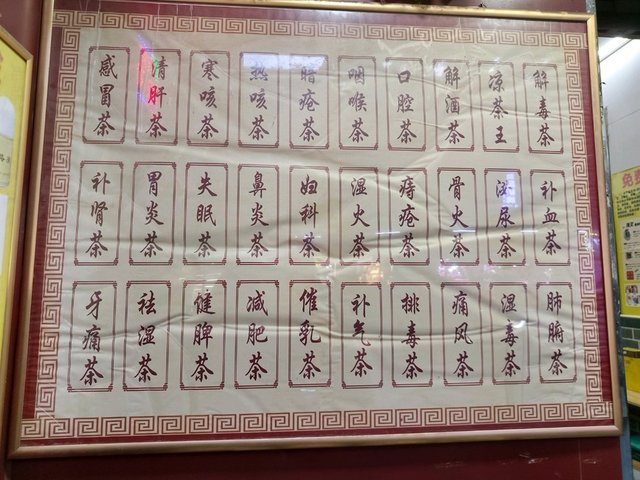 感冒茶
清肝茶
寒咳茶
热咳茶
暗疮茶
咽喉茶
口腔茶
解酒茶
凉茶王
解毒茶
补肾茶
胃炎茶
失眠茶
鼻炎茶
妇科茶
湿火茶
痔疮茶
骨火茶
泌尿茶
补血茶
牙痛茶
祛湿茶
健脾茶
减肥茶
催乳茶
补气茶
排毒茶
痛风茶
湿毒茶
免费